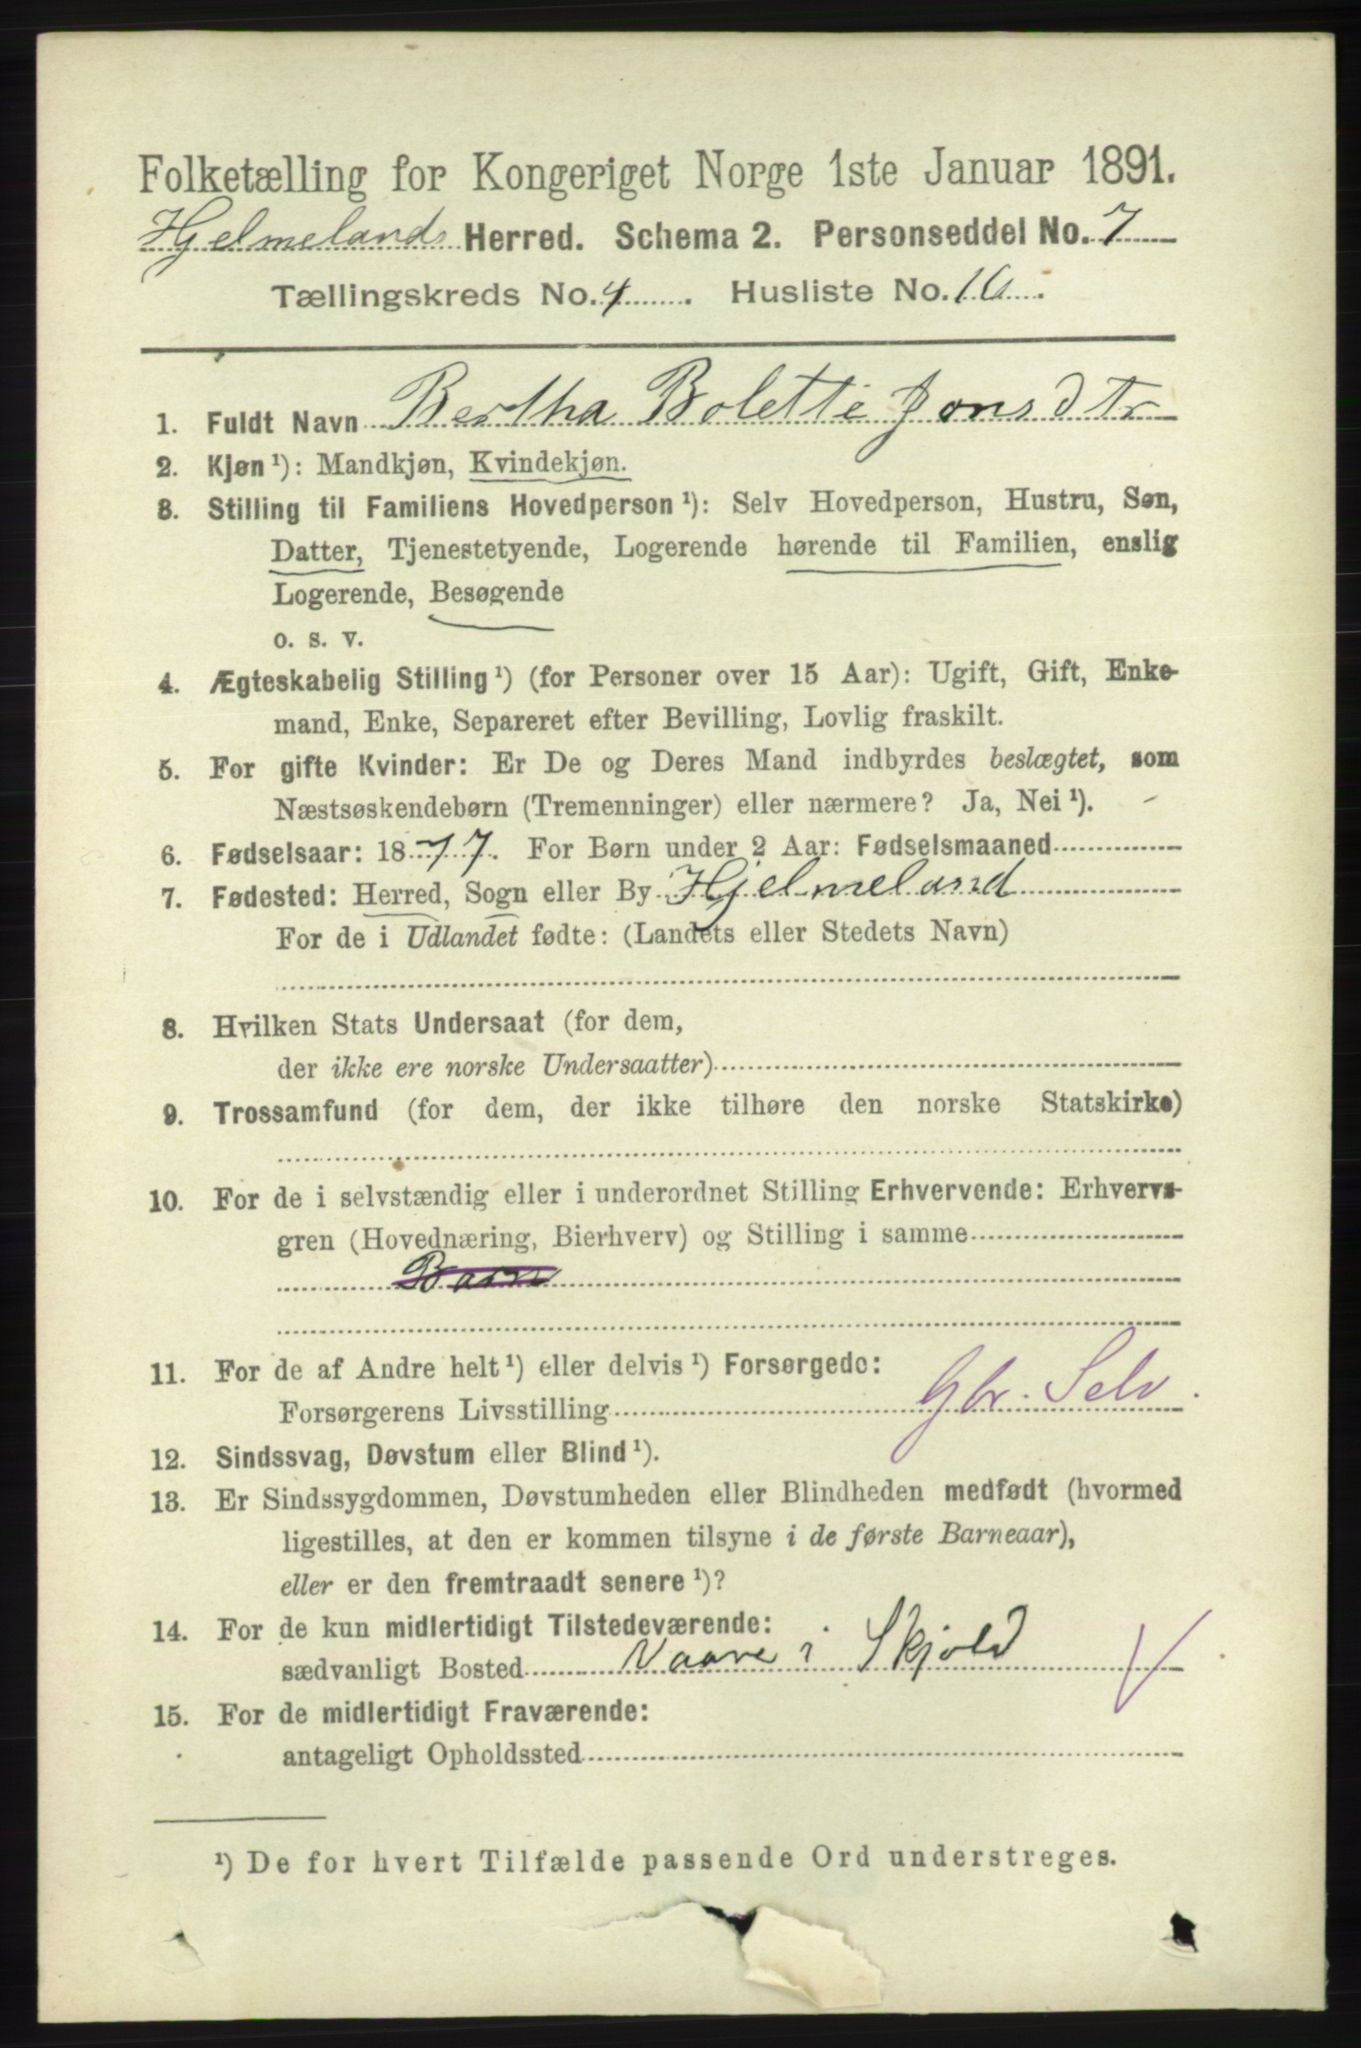 Folketælling for Kongeriget Norge 1ste Januar 1891.
Hjelmelands Herred. Schema 2. Personseddel No. 7
Tællingskreds No. 4. Husliste No. 16.
1. Fuldt Navn Bertha Bolette Jonsdtr
2. Kjøn ¹): Mandkjøn, Kvindekjøn.
3. Stilling til Familiens Hovedperson ¹): Selv Hovedperson, Hustru, Søn,
Datter, Tjenestetyende, Logerende hørende til Familien, enslig
Logerende, Besøgende
o. s. v.
4. Ægteskabelig Stilling ¹) (for Personer over 15 Aar): Ugift, Gift, Enke-
mand, Enke, Separeret efter Bevilling, Lovlig fraskilt.
5. For gifte Kvinder: Er De og Deres Mand indbyrdes beslægtet, som
Næstsøskendebørn (Tremenninger) eller nærmere? Ja, Nei ¹). -
6. Fødselsaar: 1877. For Børn under 2 Aar: Fødselsmaaned
7. Fødested: Herred, Sogn eller By Hjelmeland
For de i Udlandet fødte: (Landets eller Stedets Navn)
8. Hvilken Stats Undersaat (for dem,
der ikke ere norske Undersaatter)
9. Trossamfund (for dem, der ikke tilhøre den norske Statskirke)
10. For de i selvstændig eller i underordnet Stilling Erhvervende: Erhvervs-
gren (Hovednæring, Bierhverv) og Stilling i samme
Barn
11. For de af Andre helt ¹) eller delvis ¹) Forsørgede:
Forsørgerens Livsstilling Gbr. Selv.
12. Sindssvag, Døvstum eller Blind ¹).
13. Er Sindssygdommen, Døvstumheden eller Blindheden medfødt (hvormed
ligestilles, at den er kommen tilsyne i de første Barneaar),
eller er den fremtraadt senere ¹)?
14. For de kun midlertidigt Tilstedeværende:
sædvanligt Bosted Vaare i Skjold V
15. For de midlertidigt Fraværende:
antageligt Opholdssted
¹) De for hvert Tilfælde passende Ord understreges.